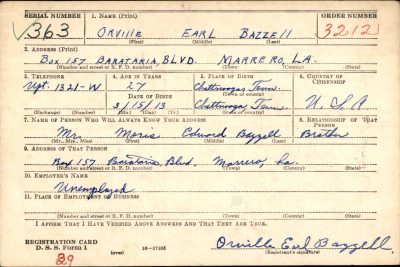 SERIAL NUMBER 1. NAME (Print) ORDER NUMBER
363 ORVILLE EARL BAZZELL 3212
(First) (Middle) (Last)
2. ADDRESS (Print)
BOX 157 BARATARIA, BLVD. MARRERO, LA.
(Number and street or R. F. D. number) (Town) (County) (State)
3. TELEPHONE 4. AGE IN YEARS 5. PLACE OF BIRTH 6. COUNTRY OF CITIZENSHIP
Upt. 1321-W. 27 Chattanooga, Tenn.
DATE OF BIRTH (Town or county)
3/15/13 Chattanooga, Tenn. U. S. A
(Exchange) (Number) (Mo.) (Day) (Yr.) (State or country)
7. NAME OF PERSON WHO WILL ALWAYS KNOW YOUR ADDRESS 8. RELATIONSHIP OF THAT PERSON
Mr. Moris Edward Bazzell Brother
(Mr., Mrs., Miss) (First) (Middle) (Last)
9. ADDRESS OF THAT PERSON
Box 157 Barataria, Blvd, Marrero, La.
(Number and street or R. F. D. number) (Town) (County) (State)
10. EMPLOYER'S NAME
Unemployed
11. PLACE OF EMPLOYMENT OR BUSINESS
(Number and street or R. F. D. number) (Town) (County) (State)
I AFFIRM THAT I HAVE VERIFIED ABOVE ANSWERS AND THAT THEY ARE TRUE.
REGISTRATION CARD
D. S. S. Form 1 (over) 16—17105 Orville Earl Bazzell
(Registrant's signature)
29